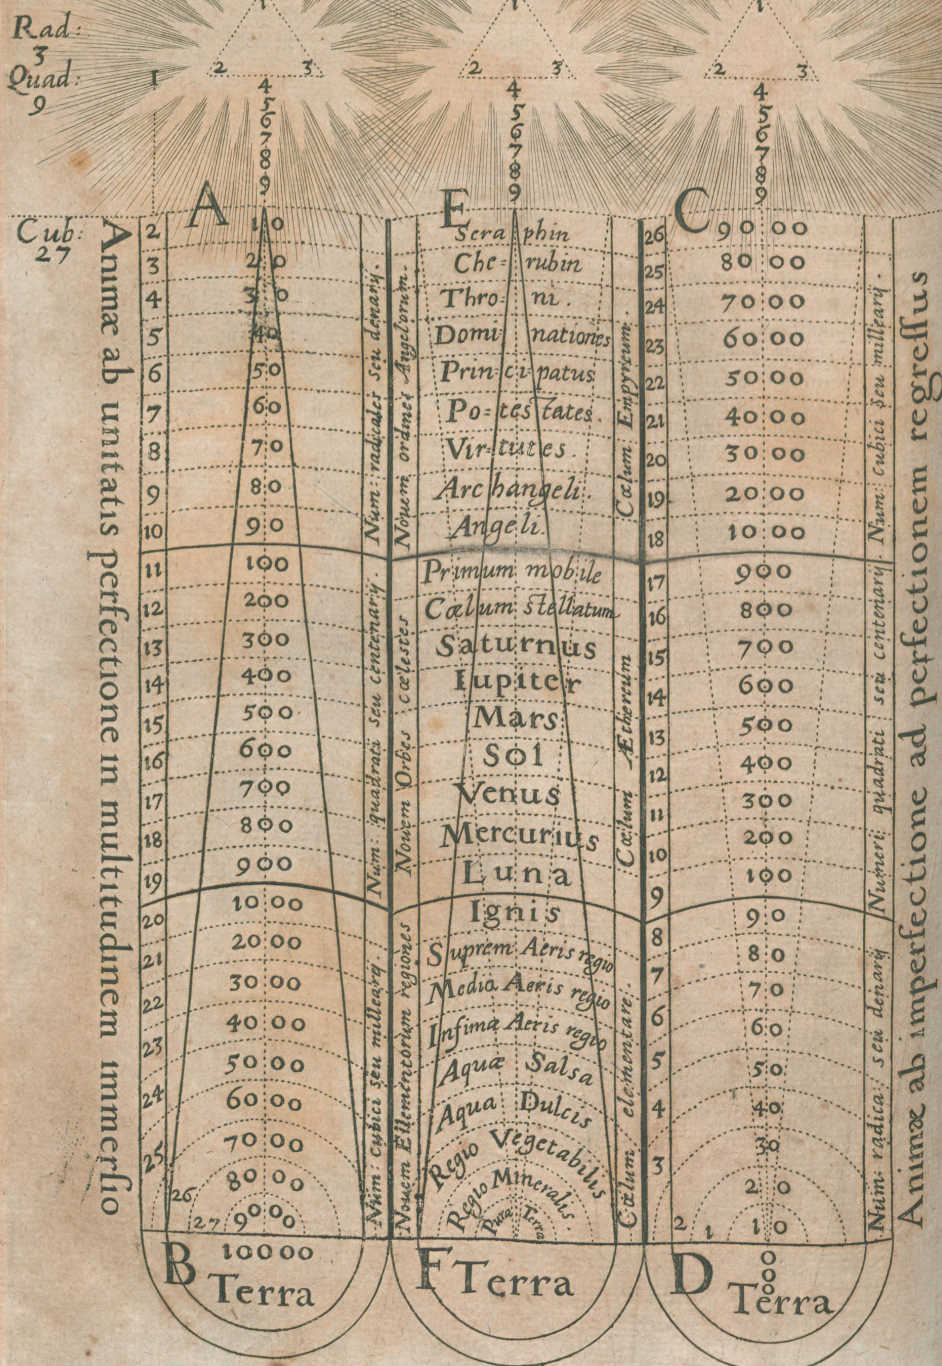 Rad:
3
Quad:
9
Cub:
27
1
1
2 3
4
5
6
7
8
9
1
2 3
4
5
6
7
8
9
1
2 3
4
5
6
7
8
9
Animæ ab unitatis perfectione in multitudinem immersio
2
3
4
5
6
7
8
9
10
11
12
13
14
15
16
17
18
19
20
21
22
23
24
25
26
27
A
10
20
30
40
50
60
70
80
90
100
200
300
400
500
600
700
800
900
1000
2000
3000
4000
5000
6000
7000
8000
9000
B 10000
Terra
Num: radicales seu denarij.
Num: quadrati seu centenarij.
Num: cubici seu millearij
Nouem ordines Angelorum.
Nouem Orbes cœlestes
Nouem Ellementorum regiones
E
Sera phin
Che= rubin
Thro= ni.
Domi nationes
Prin=ci patus
Po=tes tates.
Vir=tutes.
Archangeli.
Angeli.
Primum mobile
Cœlum stellatum
Saturnus
Iupiter
Mars
Sol
Venus
Mercurius
Luna
Ignis
Suprem Aeris regio
Media Aeris regio
Infima Aeris regio
Aquæ Salsa
Aqua Dulcis
Regio Vegetabilis
Regio Mineralis
Pura Terra
F Terra
Cœlum Empyreum.
Cœlum Æthereum
Cœlum elementare.
26
25
24
23
22
21
20
19
18
17
16
15
14
13
12
11
10
9
8
7
6
5
4
3
2
1
C
9000
8000
7000
6000
5000
4000
3000
2000
1000
900
800
700
600
500
400
300
200
100
90
80
70
60
50
40
30
20
10
0
0
0
D Terra
Num: cubici seu millearij.
Numeri quadrati seu centenarij.
Num: radica: seu denarij
Animæ ab imperfectione ad perfectionem regreſſus